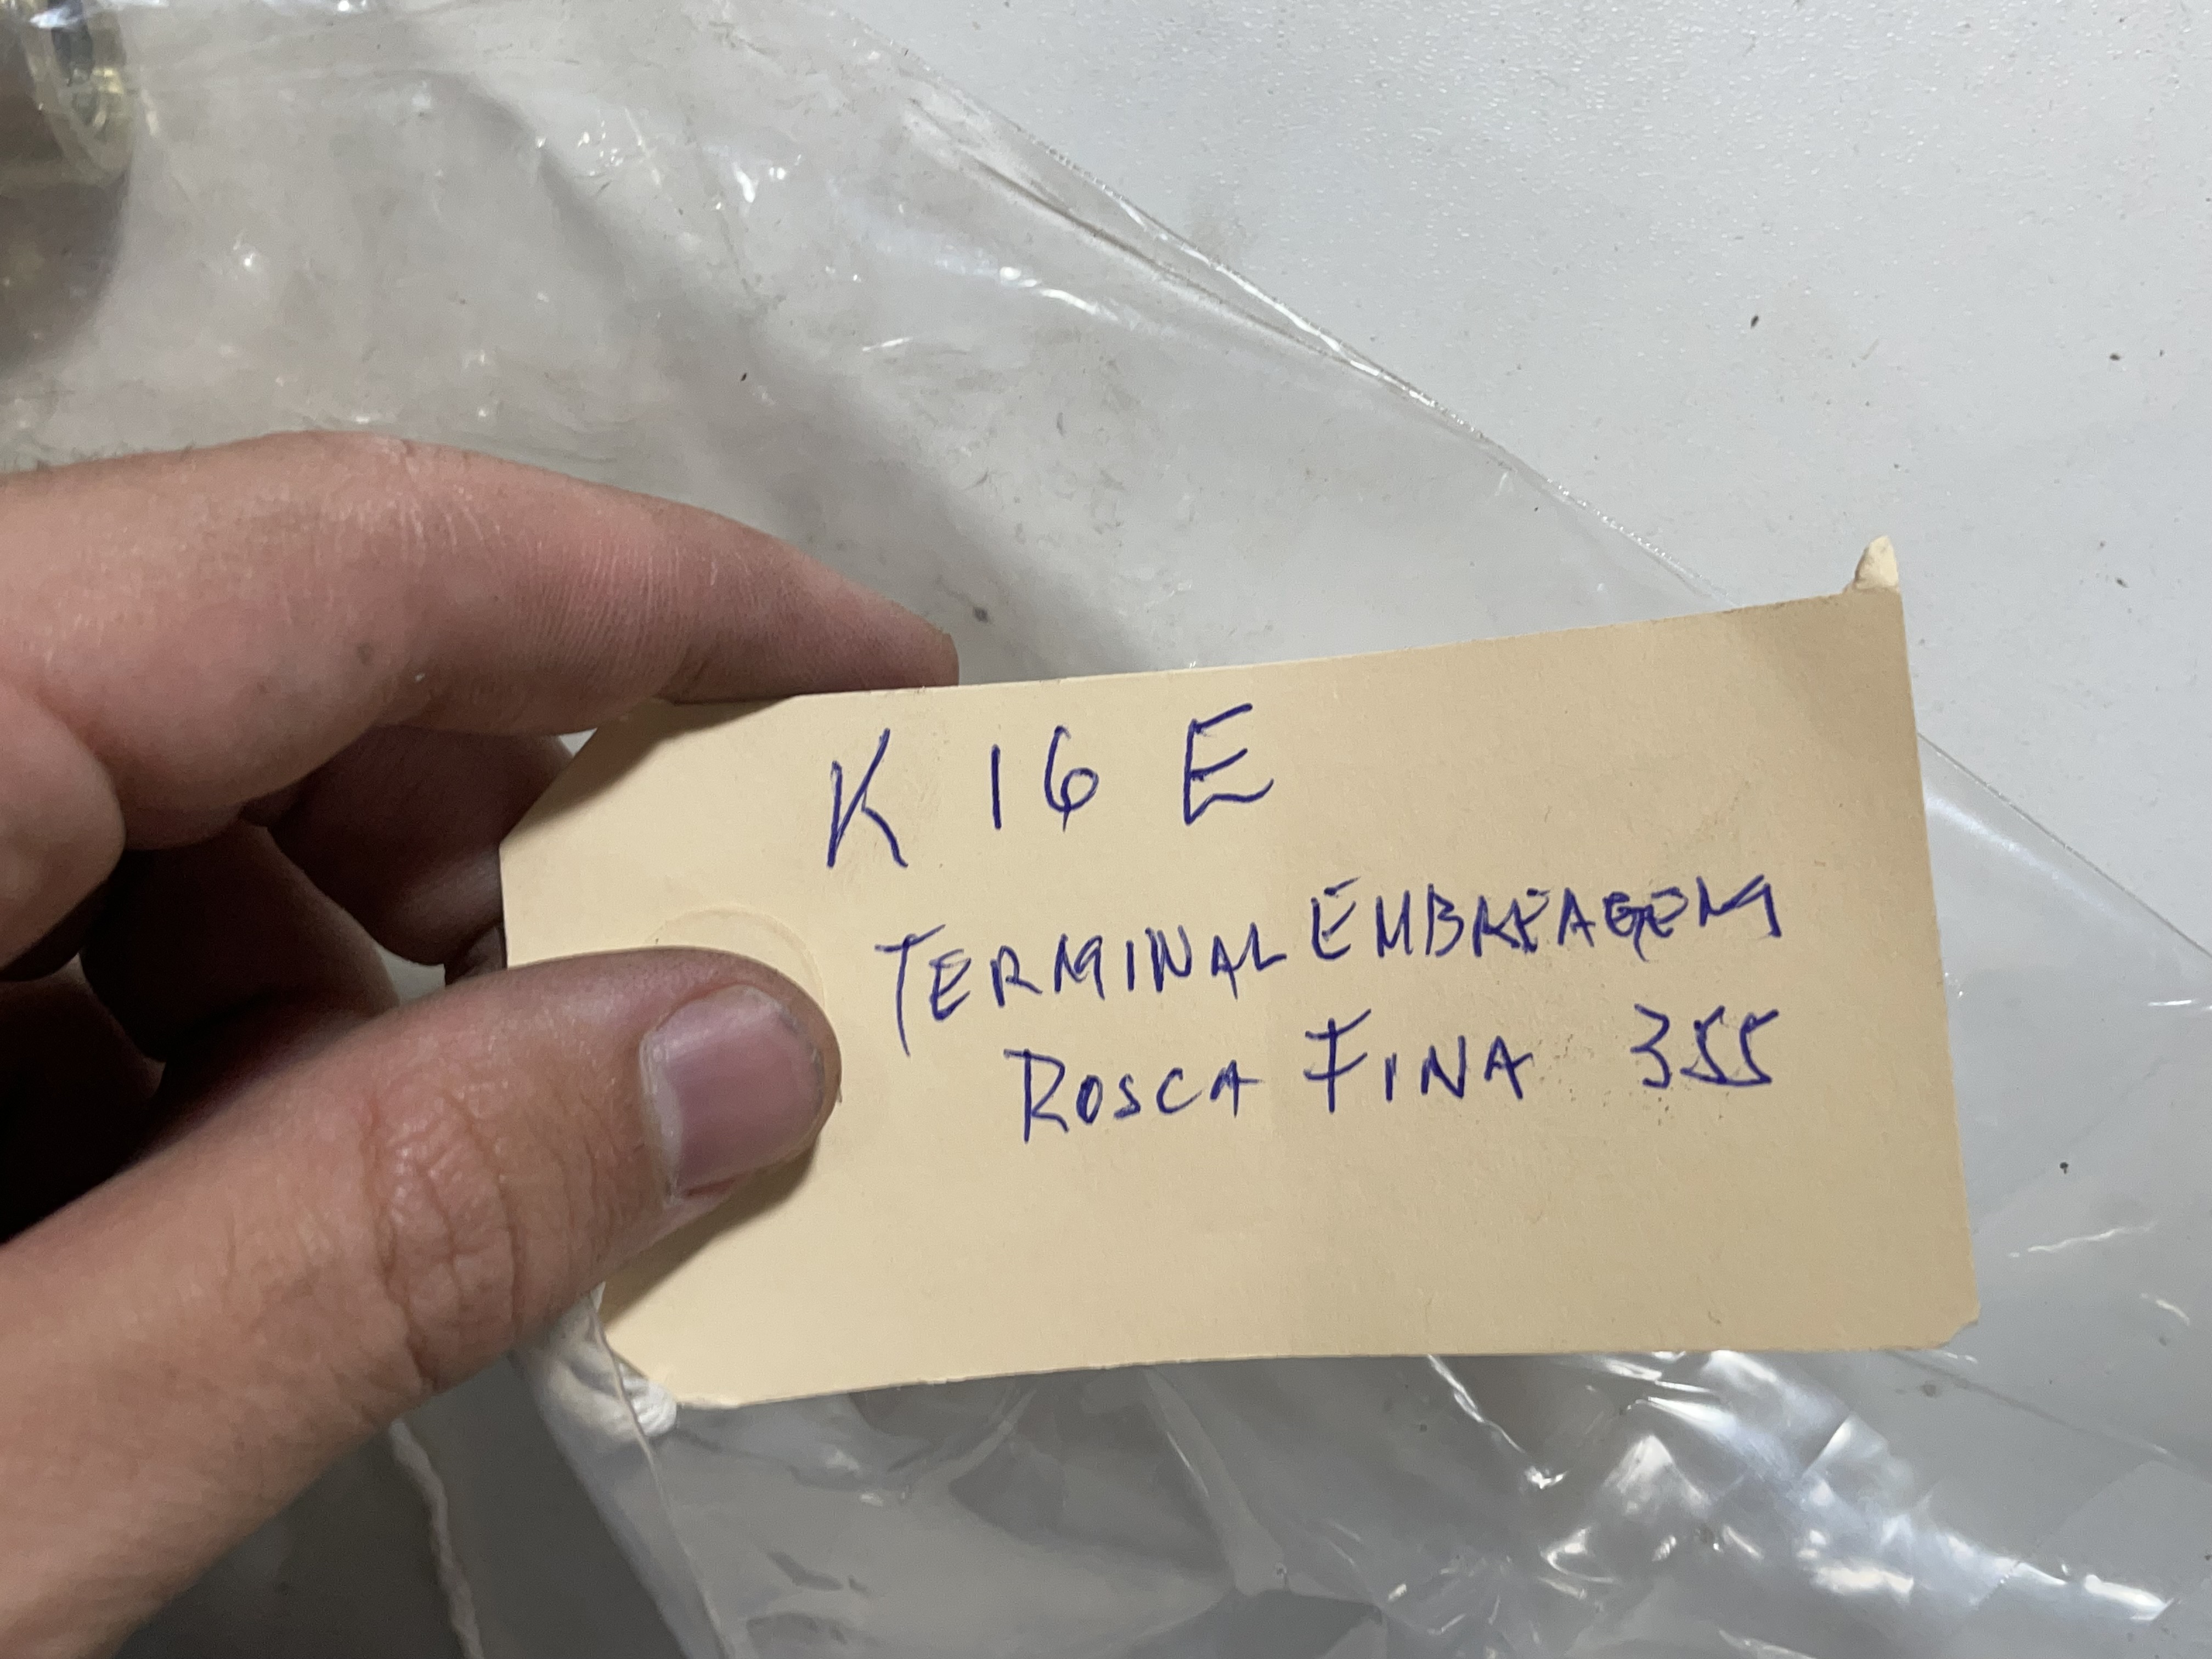 K 16 E
TERMINAL EMBRAAGEM
ROSCA FINA 355